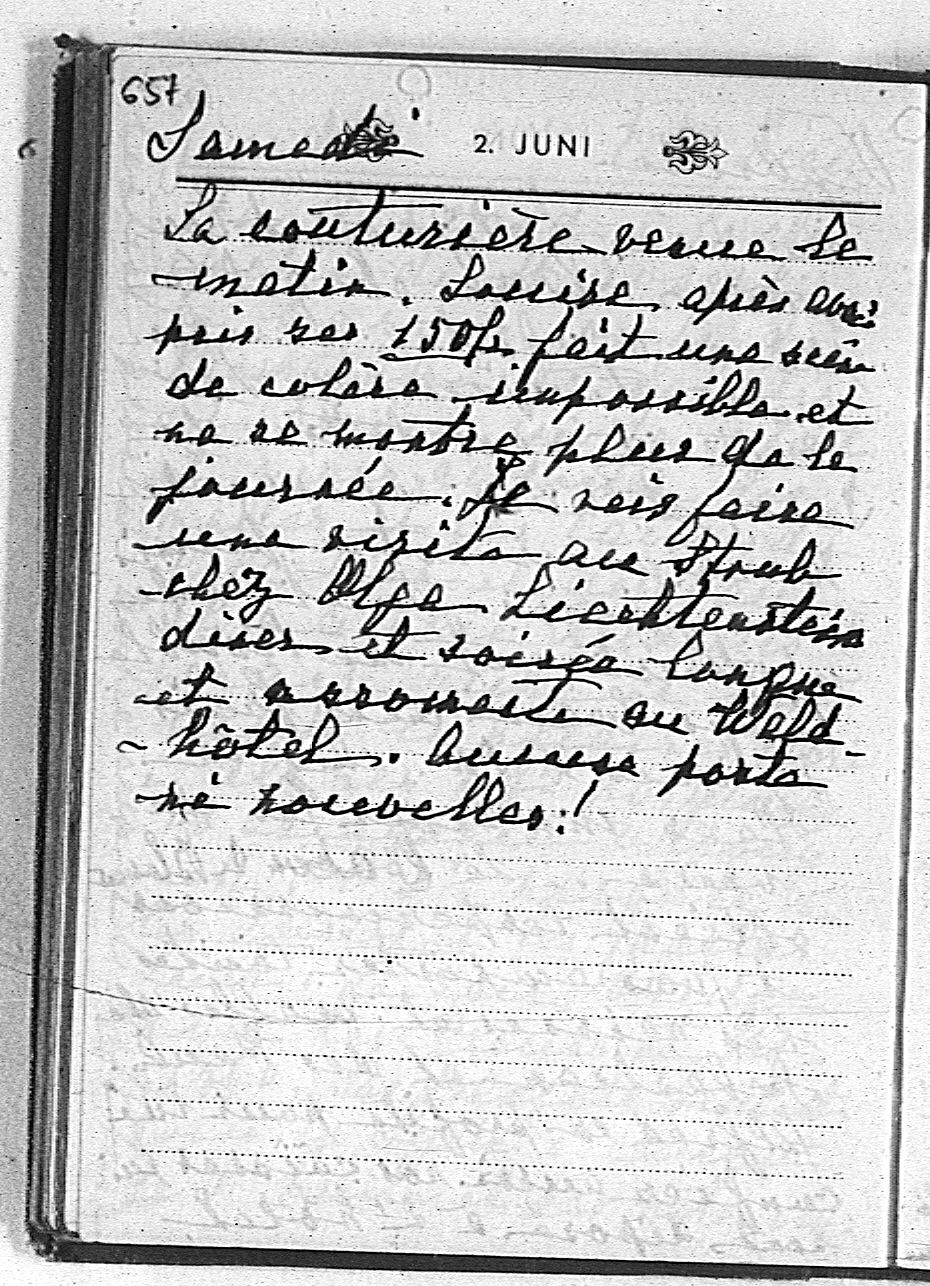 657
Samedi 2. JUNI
La couturière venue le
matin. Louise, après avoir
pris ses 150fr. fait une scène
de colère impossible et
ne se montre plus de la
journée. Je vais faire
une visite au Strub
chez Olga Liechtenstein
diner et soirée longue
et assommante au Wald-
hôtel. Aucune poste
ni nouvelles!